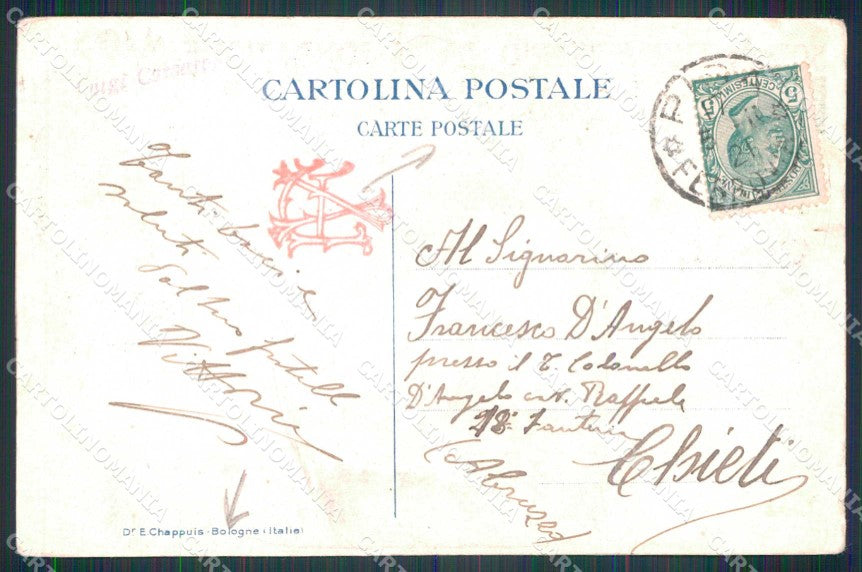 CARTOLINA POSTALE
CARTE POSTALE
Tanti baci e
saluti
dal tuo fratello
Vittorio
Al Signorino
Francesco D'Angelo
presso il T. Colonnello
D'Angelo cav. Raffaele
18° Fanteria
Chieti
(Abruzzo)
Dr E. Chappuis - Bologne (Italie)
5 CENTESIMI 5
CARTOLINOMANIA